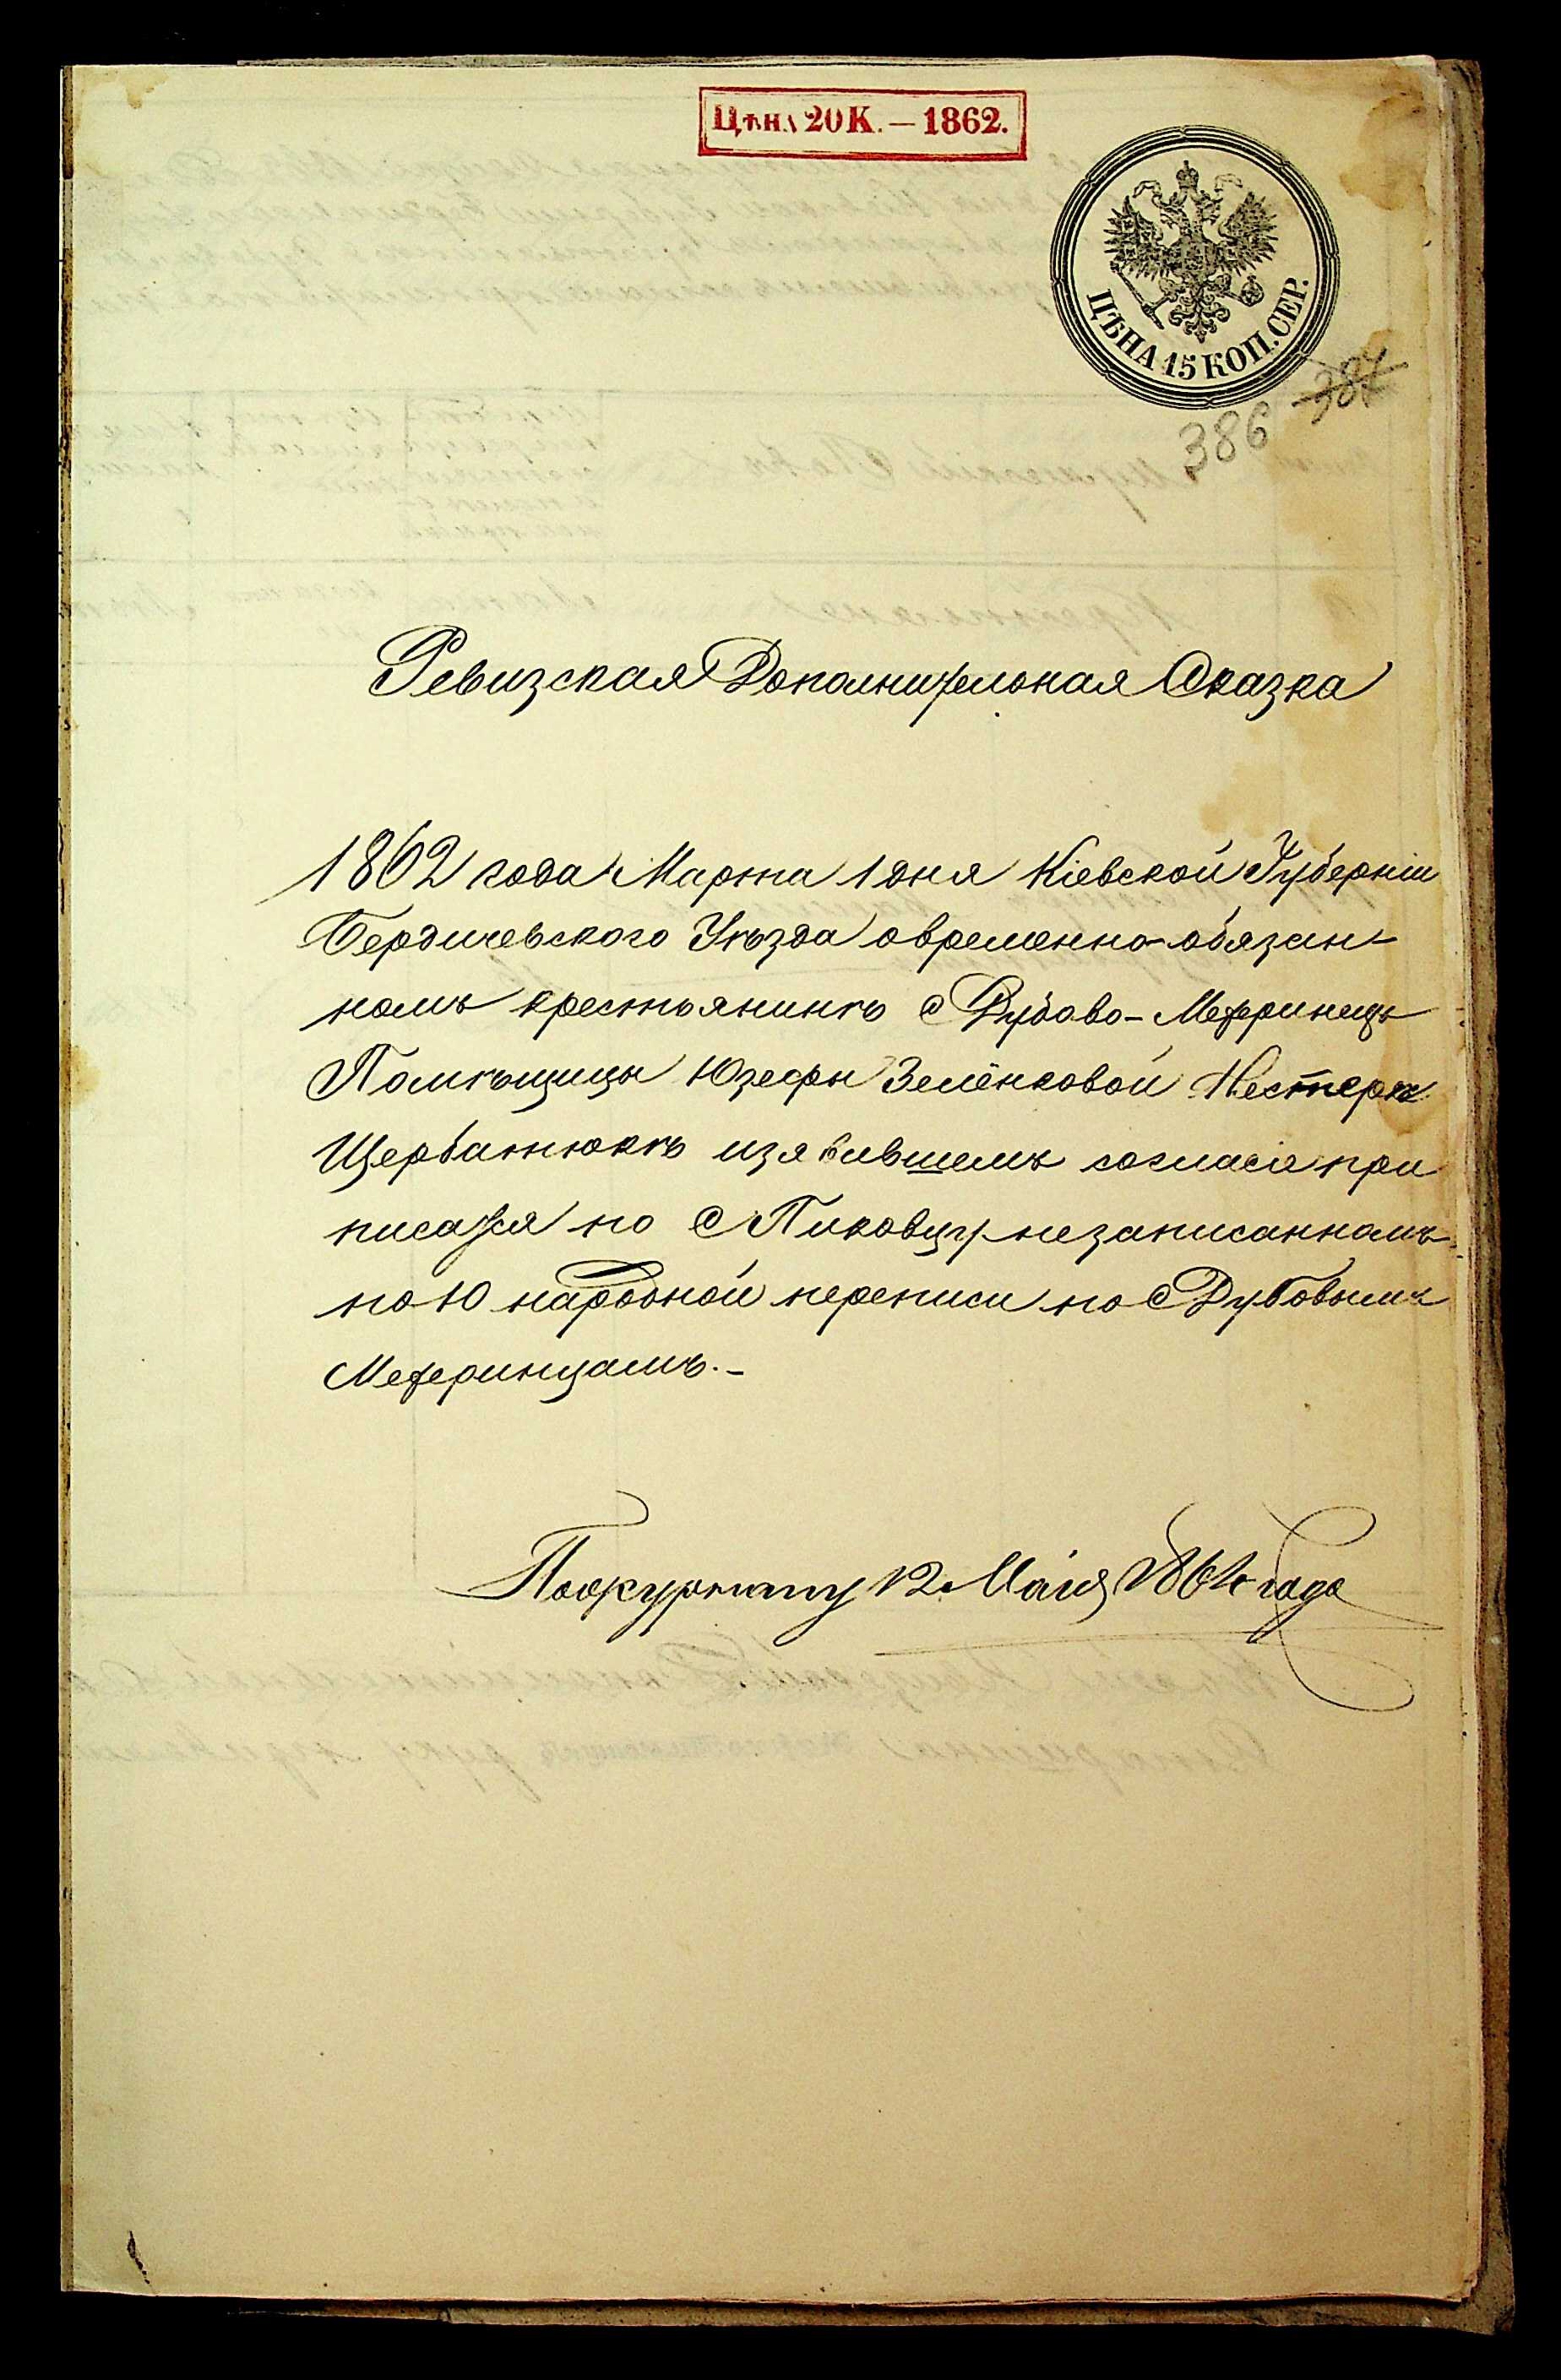 Цѣна 20 К. — 1862.
ЦѢНА 15 КОП. СЕР.
387
386
Ревизская Дополнительная Сказка
1862 года Марта 1 дня Кіевской Губерніи
Бердичевского Уѣзда овременно-обязан-
номъ крестьянинѣ с Дубово-Мехеринецъ
Помѣщицы Юзефы Зелёнковой Нестерѣ
Щербатюкѣ изявившемъ согласіе при
писатся по с Пиковцу незаписанномъ
по 10 народной переписи по с Дубовымъ
Мехеринцамъ.-
12 Маія 1864 года